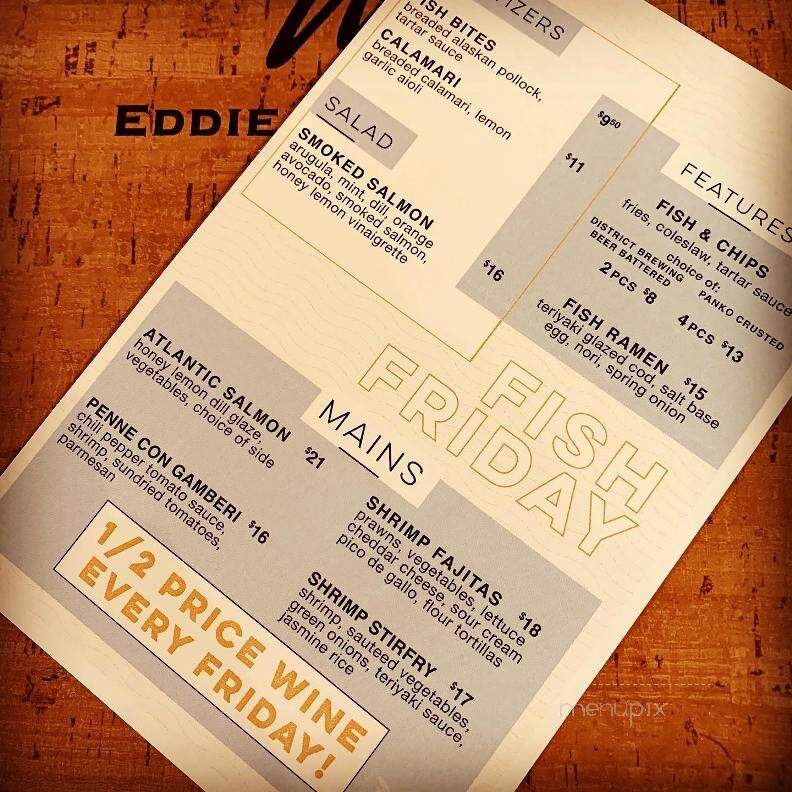 EDDIE
TIZERS
ISH BITES
breaded alaskan pollock,
tartar sauce
$9.50
CALAMARI
breaded calamari, lemon
garlic aioli
$11
SALAD
SMOKED SALMON
arugula, mint, dill, orange
avocado, smoked salmon,
honey lemon vinaigrette
$16
FEATURES
FISH & CHIPS
fries, coleslaw, tartar sauce
choice of:
DISTRICT BREWING
BEER BATTERED
PANKO CRUSTED
2 PCS $8
4 PCS $13
FISH RAMEN $15
teriyaki glazed cod, salt base
egg, nori, spring onion
FISH
FRIDAY
MAINS
ATLANTIC SALMON $21
honey lemon dill glaze,
vegetables, choice of side
PENNE CON GAMBERI $16
chili pepper tomato sauce,
shrimp, sundried tomatoes,
parmesan
SHRIMP FAJITAS $18
prawns, vegetables, lettuce
cheddar cheese, sour cream
pico de gallo, flour tortillas
SHRIMP STIRFRY $17
shrimp, sauteed vegetables,
green onions, teriyaki sauce,
jasmine rice
1/2 PRICE WINE
EVERY FRIDAY!
menupix